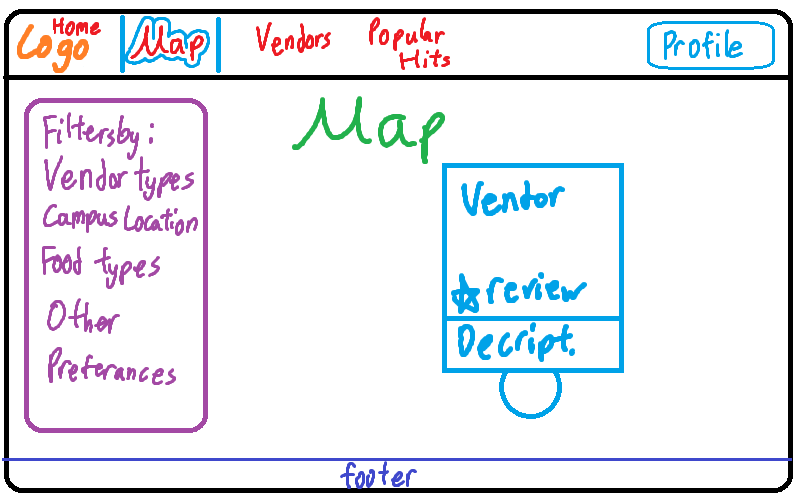 Home
Logo
Map
Vendors
Popular
Hits
Profile
Filtersby:
Vendor types
Campus Location
Food types
Other
Preferances
Map
Vendor
review
Decript.
footer